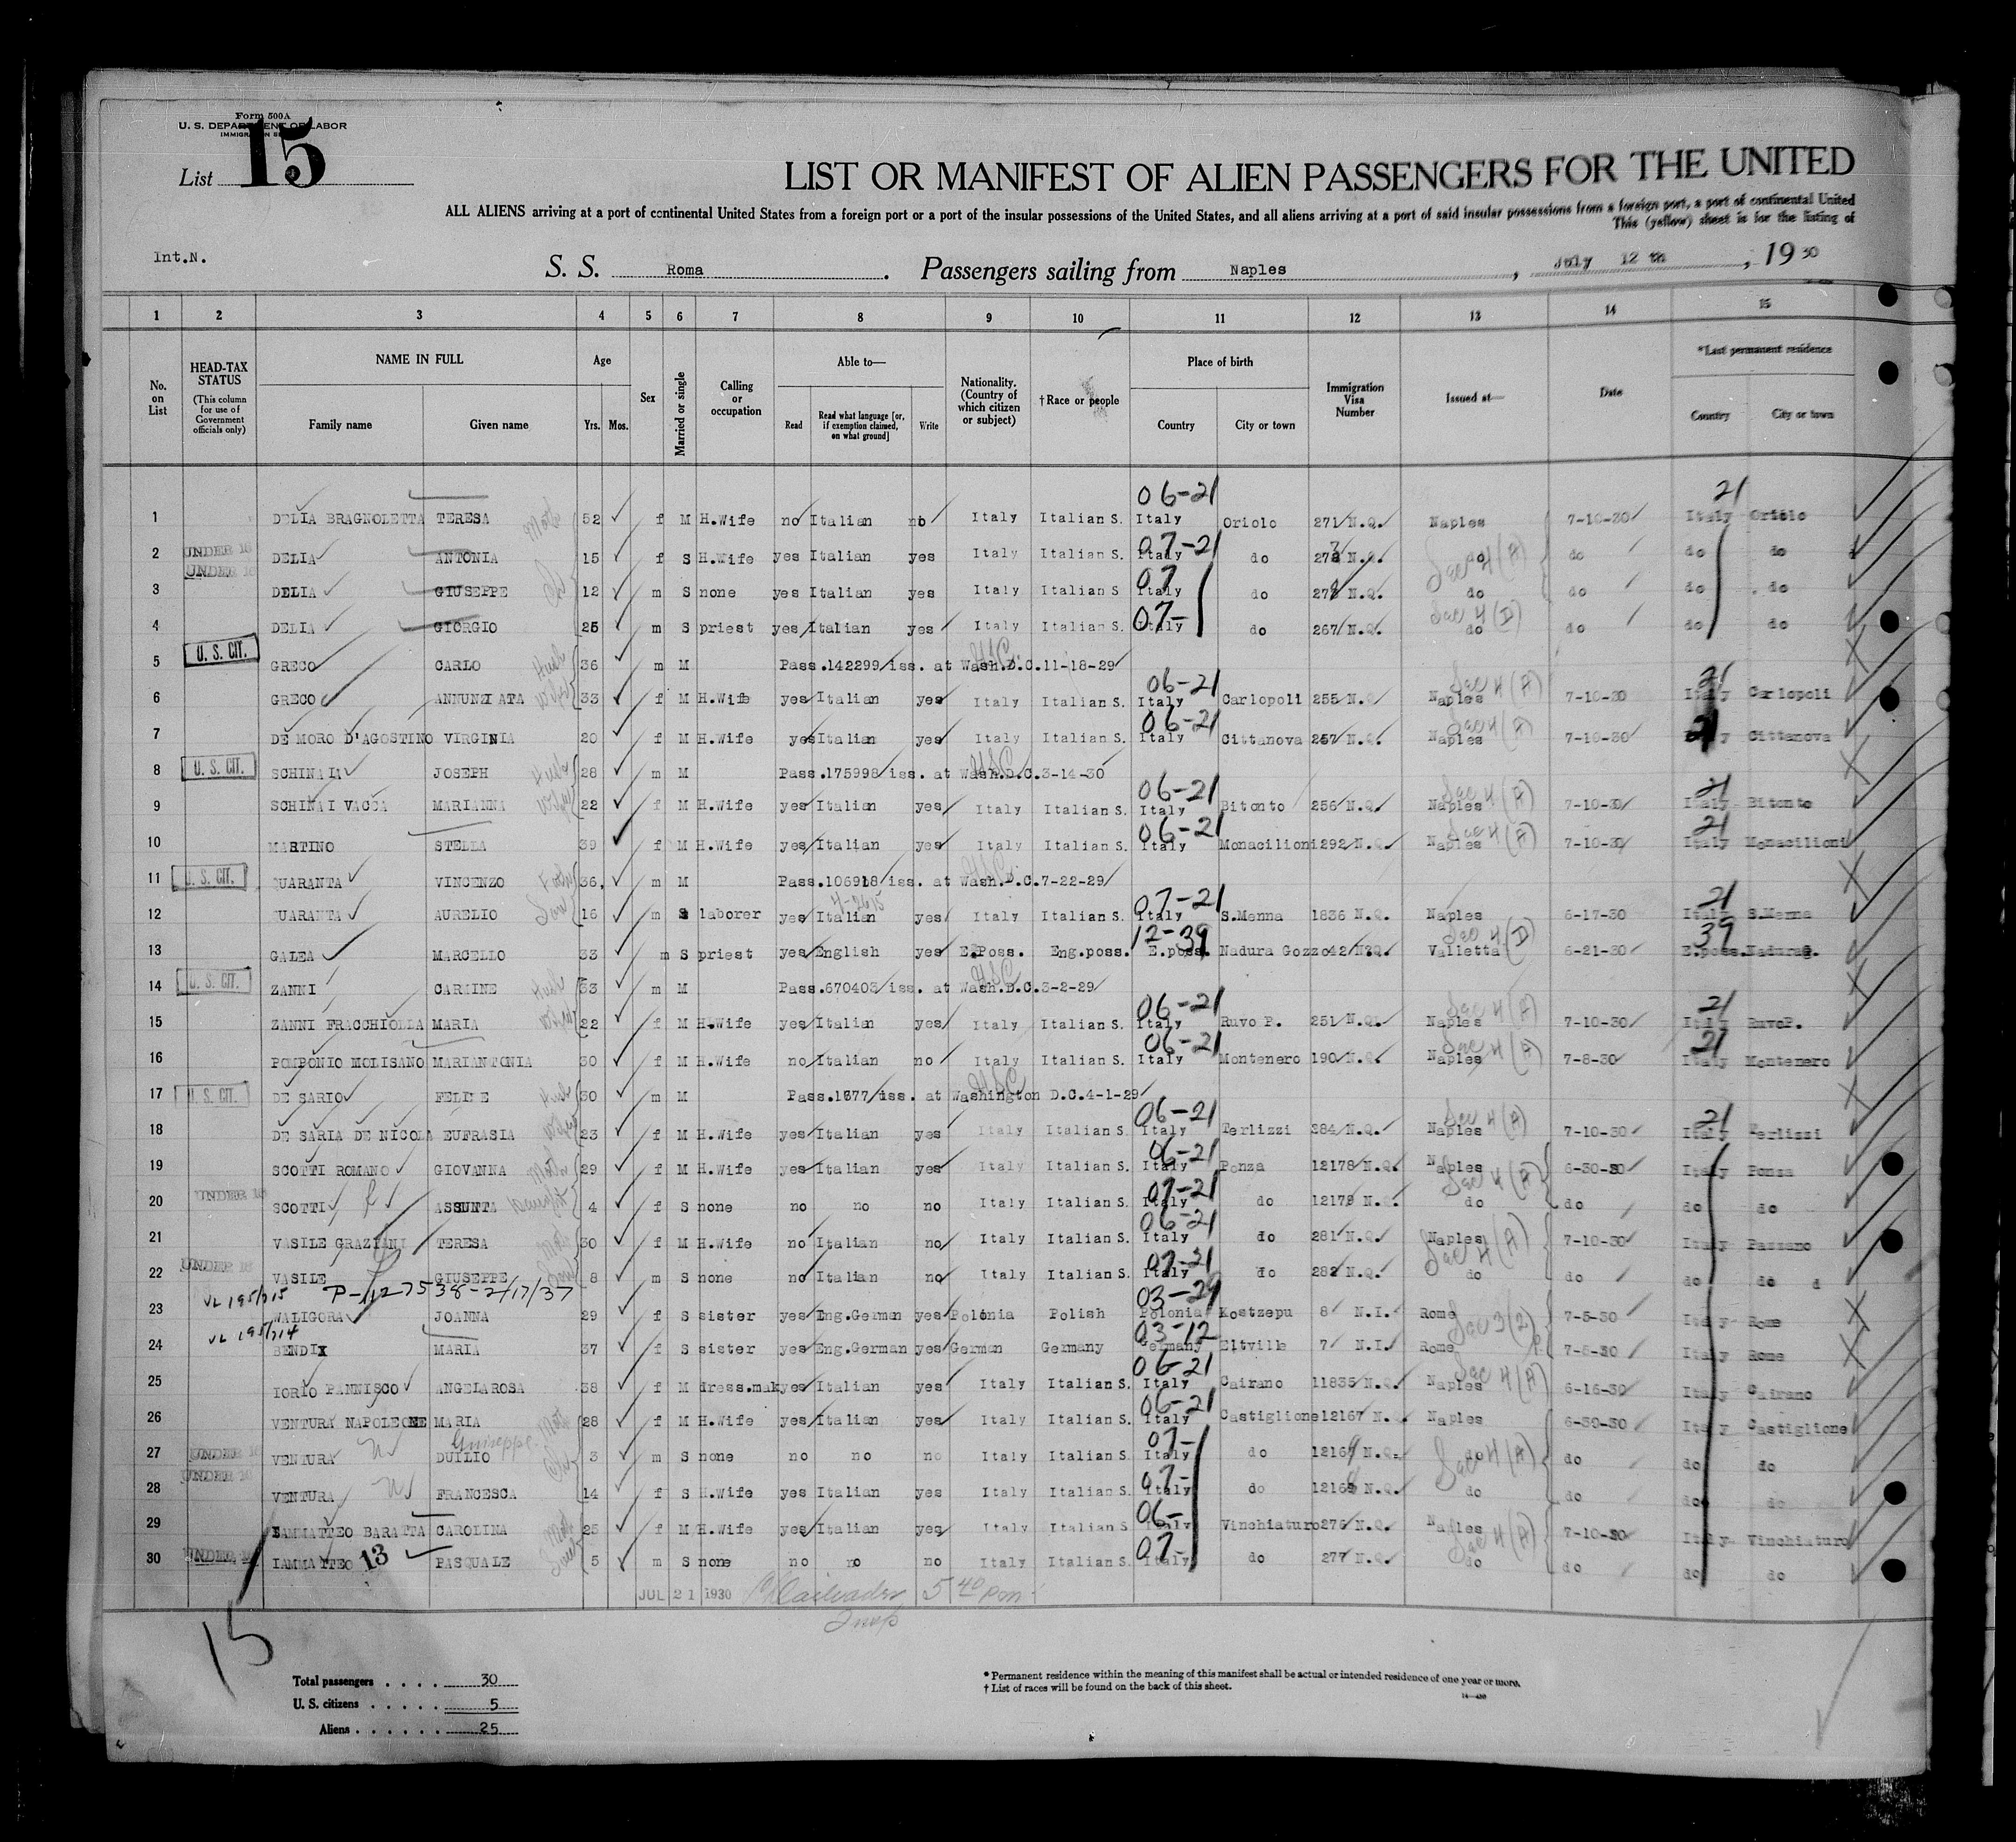 Form 500A
U. S. DEPARTMENT OF LABOR
List 15
LIST OR MANIFEST OF ALIEN PASSENGERS FOR THE UNITED
ALL ALIENS arriving at a port of continental United States from a foreign port or a port of the insular possessions of the United States, and all aliens arriving at a port of said insular possessions from a foreign port, a port of continental United
This (yellow) sheet is for the listing of
Int.N.
S. S. Roma. Passengers sailing from Naples, July 12 th, 1930
1 2 3 4 5 6 7 8 9 10 11 12 13 14 15
No. on List
HEAD-TAX STATUS (This column for use of Government officials only)
NAME IN FULL Family name Given name
Age Yrs. Mos.
Sex
Married or single
Calling or occupation
Able to— Read Read what language [or, if exemption claimed, on what ground] Write
Nationality. (Country of which citizen or subject)
†Race or people
Place of birth Country City or town
Immigration Visa Number
Issued at—
Date
*Last permanent residence Country City or town
06-21 21
1 DELIA BRAGNOLETTA TERESA 52 f M H.Wife no Italian no Italy Italian S. Italy Oriolo 271 N.Q. Naples 7-10-30 Italy Oriolo
2 UNDER 16 DELIA ANTONIA 15 f S H.Wife yes Italian yes Italy Italian S. 07-21 Italy do N.Q. do do do do
3 UNDER 16 DELIA GIUSEPPE 12 m S none yes Italian yes Italy Italian S 07 Italy do N.Q. do do do do
4 DELIA GIORGIO 25 m S priest yes Italian yes Italy Italian S. 07- Italy do 267 N.Q. Sec 4 (D) do do do do
5 U. S. CIT. GRECO CARLO Husb 36 m M Pass.142299 iss. at Wash.D.C.11-18-29
6 GRECO ANNUNZIATA Wife 33 f M H.Wife yes Italian yes Italy Italian S. 06-21 Italy Carlopoli 255 N.Q. Sec 4 (A) Naples 7-10-30 21 Italy Carlopoli
7 DE MORO D'AGOSTINO VIRGINIA 20 f M H.Wife yes Italian yes Italy Italian S. 06-21 Italy Cittanova 257 N.Q. Sec 4 (A) Naples 7-10-30 21 Cittanova
8 U. S. CIT. SCHINAIA JOSEPH 28 m M Pass.175998 iss. at Wash.D.C.3-14-30
9 SCHINAI VACCA MARIANNA 22 f M H.Wife yes Italian yes Italy Italian S. 06-21 Italy Bitonto 256 N.Q. Sec 4 (A) Naples 7-10-30 21 Italy Bitonto
10 MARTINO STELLA 39 f M H.Wife yes Italian yes Italy Italian S. 06-21 Italy Monacilioni 292 N.Q. Sec 4 (A) Naples 7-10-30 21 Italy Monacilioni
11 U. S. CIT. QUARANTA VINCENZO 36 m M Pass.106918 iss. at Wash.D.C.7-22-29
12 QUARANTA AURELIO 16 m S laborer yes Italian yes Italy Italian S. 07-21 Italy S.Menna 1836 N.Q. Naples 6-17-30 21 Italy S.Menna
13 GALEA MARCELLO 33 m S priest yes English yes E.Poss. Eng.poss. 12-39 E.poss. Nadura Gozzo 42 N.Q. Sec 4 (D) Valletta 6-21-30 39 E.poss. NaduraG.
14 U. S. CIT. ZANNI CARMINE 33 m M Pass.670403 iss. at Wash.D.C.3-2-29
15 ZANNI FRACCHIOLLA MARIA 22 f M H.Wife yes Italian yes Italy Italian S. 06-21 Italy Ruvo P. 251 N.Q. Sec 4 (A) Naples 7-10-30 21 Italy RuvoP.
16 POMPONIO MOLISANO MARIANTONIA 30 f M H.Wife no Italian no Italy Italian S. 06-21 Italy Montenero 190 N.Q. Sec 4 (A) Naples 7-8-30 21 Italy Montenero
17 U. S. CIT. DE SARIO FELICE 30 m M Pass.1677 iss. at Washington D.C.4-1-29
18 DE SARIA DE NICOLA EUFRASIA 23 f M H.Wife yes Italian yes Italy Italian S. 06-21 Italy Terlizzi 284 N.Q. Sec 4 (A) Naples 7-10-30 21 Italy Terlizzi
19 SCOTTI ROMANO GIOVANNA 29 f M H.Wife yes Italian yes Italy Italian S. 06-21 Italy Ponza 12178 N.Q. Naples 6-30-30 Italy Ponza
20 UNDER 16 SCOTTI ASSUNTA 4 f S none no no no Italy Italian S. 07-21 Italy do 12179 N.Q. Sec 4 (A) do do do do
21 VASILE GRAZIANI TERESA 30 f M H.Wife no Italian no Italy Italian S. 06-21 Italy do 281 N.Q. Naples 7-10-30 Italy Pazzano
22 UNDER 16 VASILE GIUSEPPE 8 m S none no Italian no Italy Italian S. 07-21 Italy do 282 N.Q. Sec 4 (A) do do do do
P-1127538-2/17/37
23 WALIGORA JOANNA 29 f S sister yes Eng.German yes Polonia Polish 03-29 Polonia Kostzepu 8 N.I. Rome 7-5-30 Italy Rome
24 BENDIX MARIA 37 f S sister yes Eng.German yes German Germany 03-12 Germany Eltville 7 N.I. Rome 7-5-30 Italy Rome
25 IORIO PANNISCO ANGELAROSA 38 f M dress.mak yes Italian yes Italy Italian S. 06-21 Italy Cairano 11835 N.Q. Sec 4 (A) Naples 6-16-30 Italy Cairano
26 VENTURA NAPOLEONE MARIA 28 f M H.Wife yes Italian yes Italy Italian S. 06-21 Italy Castiglione 12167 N. Naples 6-30-30 Italy Castiglione
27 UNDER 16 VENTURA Guiseppe DUILIO 3 m S none no no no Italy Italian S. 07- Italy do 12169 N.Q. Sec 4 (A) do do do do
28 UNDER 16 VENTURA FRANCESCA 14 f S H.Wife yes Italian yes Italy Italian S. 07- Italy do 12168 N.Q. do do do do
29 IAMMATTEO BARATTA CAROLINA 25 f M H.Wife yes Italian yes Italy Italian S 06- Italy Vinchiaturo 276 N.Q. Naples 7-10-30 Italy Vinchiaturo
30 UNDER 16 IAMMATTEO 13 PASQUALE 5 m S none no no no Italy Italian S. 07- Italy do 277 N.Q. Sec 4 (A) do do do do
JUL 21 1930 5 40 pm
Insp
15
Total passengers . . . . 30
U. S. citizens . . . . . 5
Aliens . . . . . . 25
* Permanent residence within the meaning of this manifest shall be actual or intended residence of one year or more.
† List of races will be found on the back of this sheet.